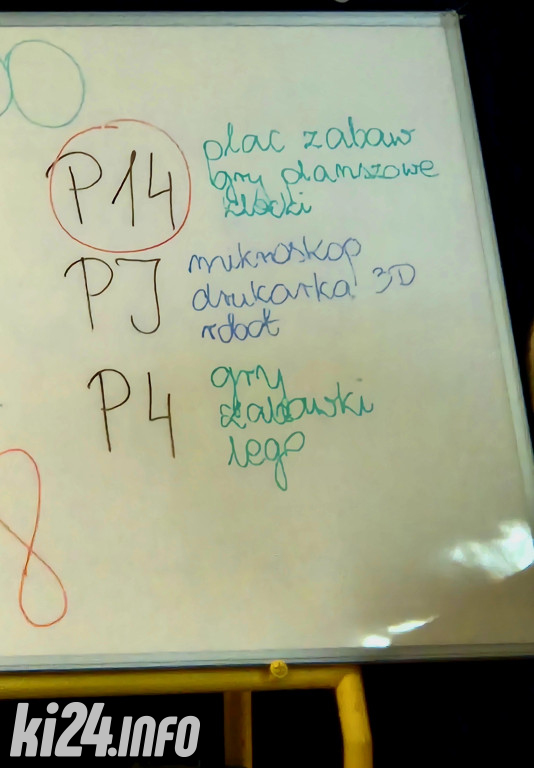 P14 plac zabaw
gry planszowe
klocki
PJ mikroskop
drukarka 3D
robot
P4 gry
zabawki
lego
8
ki24.info